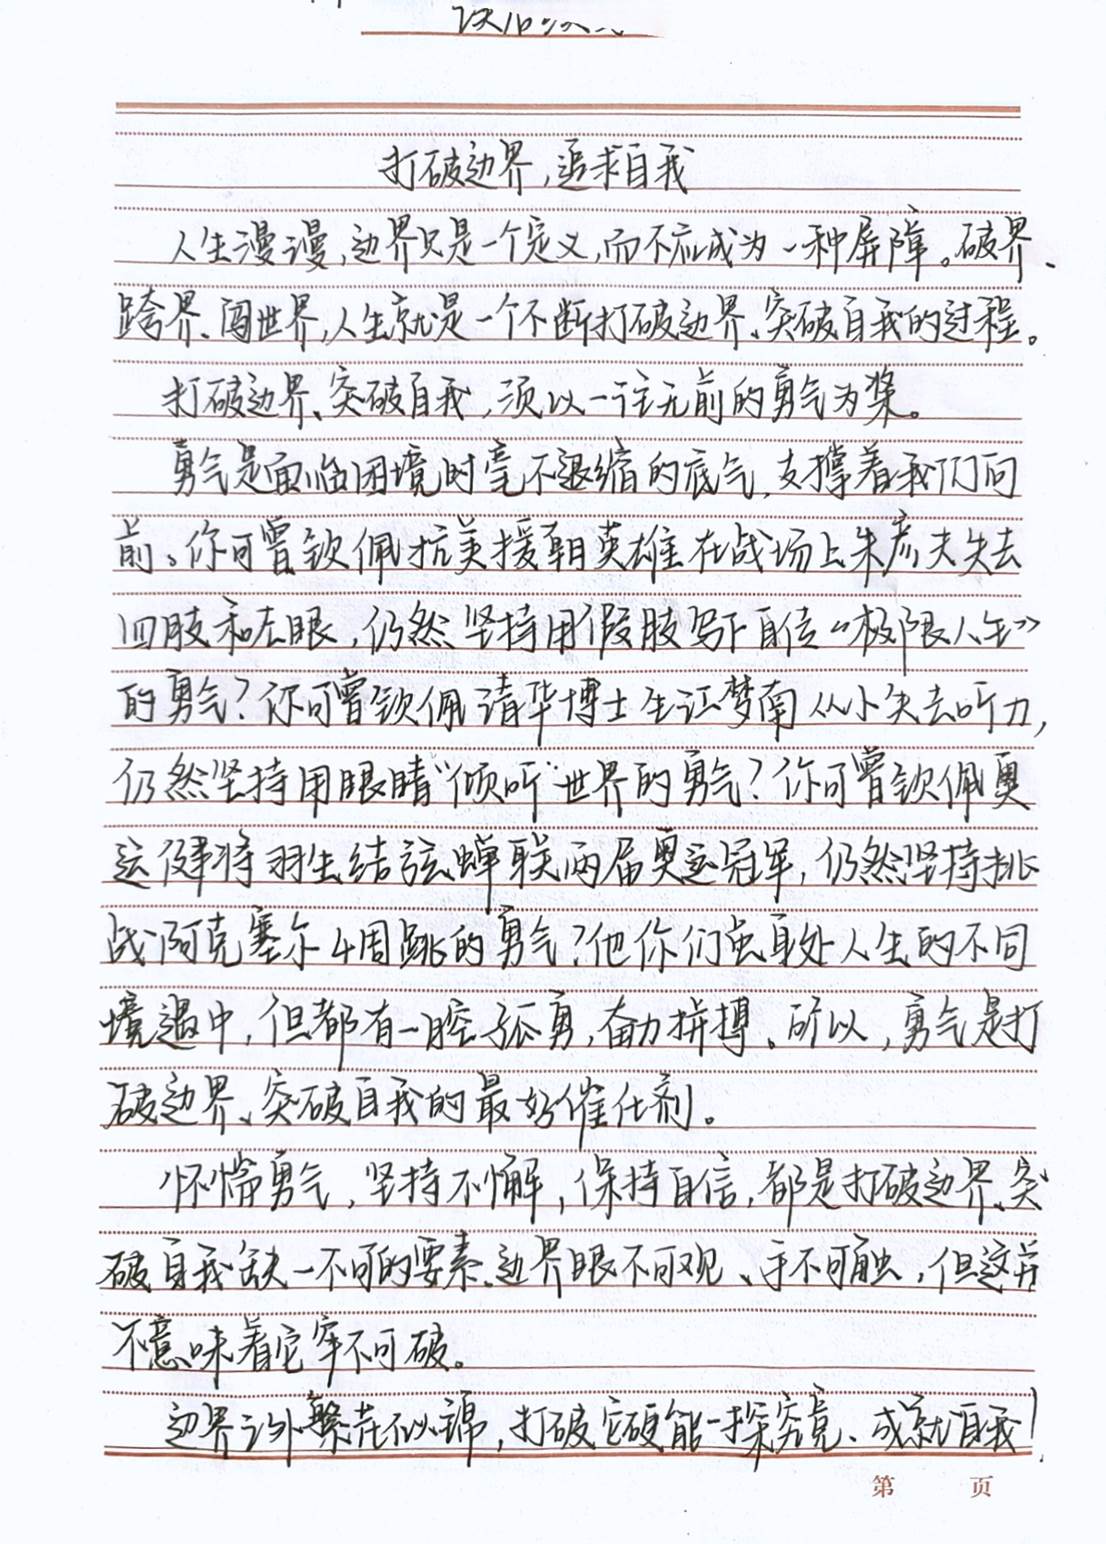 打破边界,追求自我
人生漫漫,边界只是一个定义,而不应成为一种屏障。破界、
跨界、闯世界,人生就是一个不断打破边界、突破自我的过程。
打破边界、突破自我,须以一往无前的勇气为桨。
勇气是面临困境时毫不退缩的底气,支撑着我们向
前。你可曾钦佩抗美援朝英雄在战场上朱彦夫失去
四肢和左眼,仍然坚持用假肢写下自传《极限人生》
的勇气?你可曾钦佩清华博士生江梦南从小失去听力,
仍然坚持用眼睛“倾听”世界的勇气?你可曾钦佩奥
运健将羽生结弦蝉联两届奥运冠军,仍然坚持挑
战阿克塞尔4周跳的勇气?他你们虽身处人生的不同
境遇中,但都有一腔孤勇,奋力拼搏。所以,勇气是打
破边界、突破自我的最好催化剂。
怀揣勇气,坚持不懈,保持自信,都是打破边界、突
破自我缺一不可的要素。边界眼不可观、手不可触,但这并
不意味着它牢不可破。
边界之外繁花似锦,打破它便能一探究竟、成就自我!
第 页